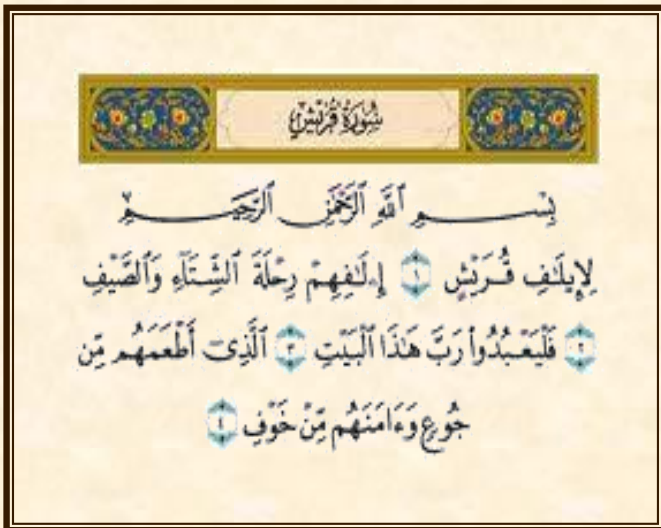 سُورَةُ قُرَيْشٍ
بِسْمِ ٱللَّهِ ٱلرَّحْمَٰنِ ٱلرَّحِيمِ
لِإِيلَٰفِ قُرَيْشٍ ١ إِۦلَٰفِهِمْ رِحْلَةَ ٱلشِّتَآءِ وَٱلصَّيْفِ
٢ فَلْيَعْبُدُوا۟ رَبَّ هَٰذَا ٱلْبَيْتِ ٣ ٱلَّذِىٓ أَطْعَمَهُم مِّن
جُوعٍ وَءَامَنَهُم مِّنْ خَوْفٍۭ ٤